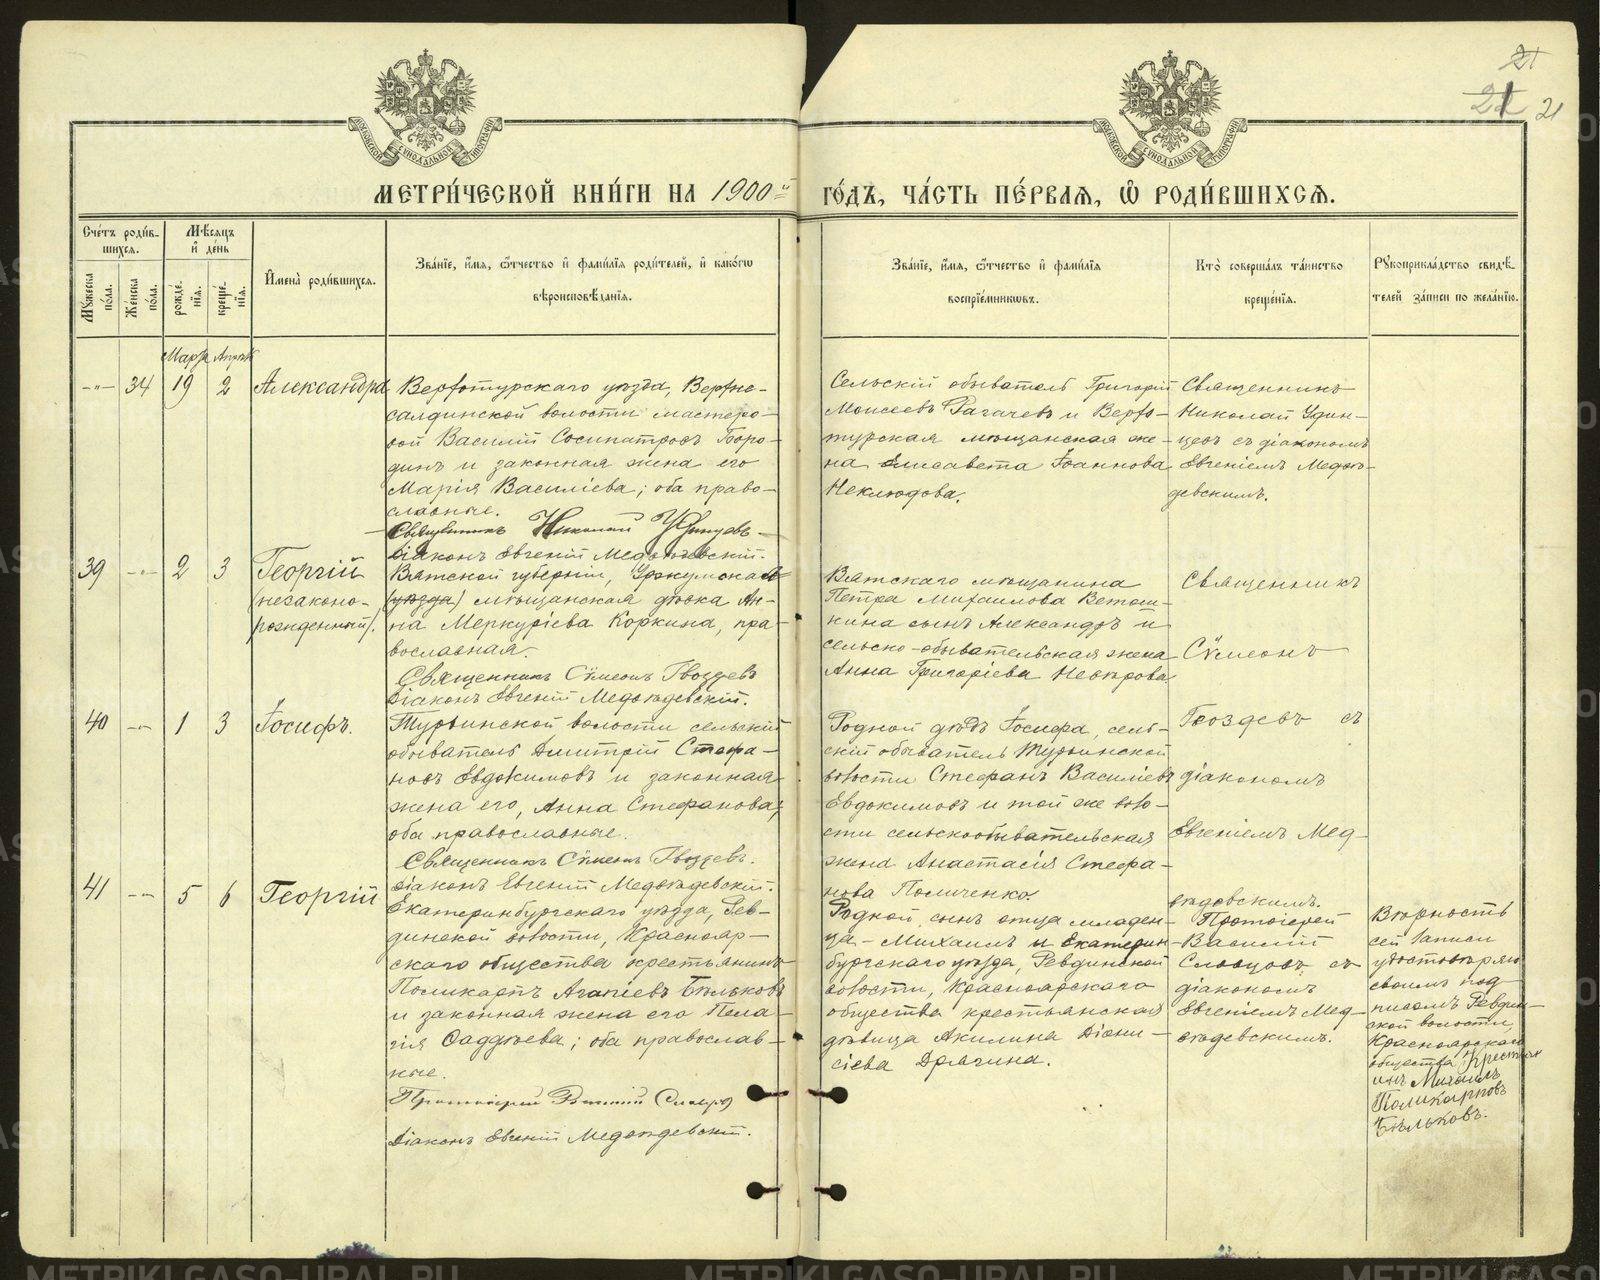 21
21 21
МЕТРИ́ЧЕСКОЙ КНИ́ГИ НА 1900й ГО́ДЪ, ЧА́СТЬ ПЕ́РВАЯ, Ѡ РОДИ́ВШИХСЯ.
Сче́тъ роди́вшихся.
Мꙋ́жеска по́ла.
Же́нска по́ла.
Мѣ́сяцъ и де́нь
рожде́нїя.
креще́нїя.
И҆мена̀ роди́вшихся.
Зва́нїе, и҆́мя, ѻ҆́тчество и҆ фами́лїя роди́телей, и҆ како́гѡ
вѣроисповѣ́данїя.
Зва́нїе, и҆́мя, ѻ҆́тчество и҆ фами́лїя
воспрїе́мникѡвъ.
Кто̀ соверша́лъ та́инство
креще́нїя.
Рꙋкоприкла́дство свидѣ́-
телей за́писи по жела́нїю.
Марта Апрѣля
-"- 34 19 2 Александра
Верхотурскаго уѣзда, Верхне-
салдинской волости мастеро-
вой Василій Сосипатровъ Боро-
динъ и законная жена его
Марія Василіева; оба право-
славные.
Священникъ Николай Удинцевъ
Діаконъ Евгеній Медвѣдевскій.
Сельскій обыватель Григорій
Моисеевъ Рагачевъ и Верхо-
турская мѣщанская же-
на Елисавета Іоаннова
Неклюдова.
Священникъ
Николай Удин-
цевъ съ діакономъ
Евгеніемъ Медвѣ-
девскимъ.
39 -"- 2 3 Георгій
(незаконо-
рожденный).
Вятской губерніи, Уржумская
(уѣзда) мѣщанская дѣвка Ан-
на Меркуріева Коркина, пра-
вославная.
Священникъ Сѵмеонъ Гвоздевъ
Діаконъ Евгеній Медвѣдевскій.
Вятскаго мѣщанина
Петра Михаилова Ветош-
кина сынъ Александръ и
сельско-обывательская жена
Анна Григоріева
Священникъ
Сѵмеонъ
40 -"- 1 3 Іосифъ.
Турьинской волости сельскій
обыватель Димитрій Стефа-
новъ Евдокимовъ и законная
жена его, Анна Стефанова;
оба православные.
Священникъ Сѵмеонъ Гвоздевъ.
Діаконъ Евгеній Медвѣдевскій.
Родной дѣдъ Іосифа, сель-
скій обыватель Турьинской
волости Стефанъ Василіевъ
Евдокимовъ и той же воло-
сти сельскообывательская
жена Анастасія Стефа-
нова Поличенко.
Гвоздевъ съ
діакономъ
Евгеніемъ Мед-
вѣдевскимъ.
41 -"- 5 6 Георгій
Екатеринбургскаго уѣзда, Рев-
динской волости, Краснояр-
скаго общества крестьянинъ
Поликарпъ Агапіевъ Бѣльковъ
и законная жена его Пела-
гія Фаддѣева; оба православ-
ные.
Протоіерей Василій Словцовъ
Діаконъ Евгеній Медвѣдевскій.
Родной сынъ отца младен-
ца - Михаилъ и Екатерин-
бургскаго уѣзда, Ревдинской
волости, Красноярскаго
общества крестьянская
дѣвица Акилина Діони-
сіева Драчина.
Протоіерей
Василій
Словцовъ съ
діакономъ
Евгеніемъ Мед-
вѣдевскимъ.
Вѣрность
сей записи
удостовѣряю
своимъ под-
писомъ Ревдин-
ской волости,
Красноярскаго
общества крестьян-
инъ Михаилъ
Поликарповъ
Бѣльковъ.
METRIKI.GASO-URAL.RU